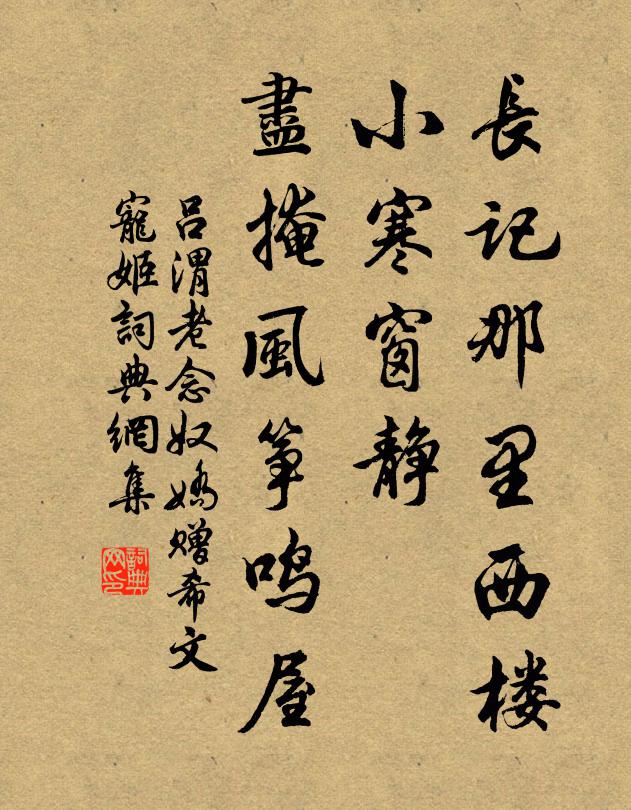 長記那里西楼
小寒窗静
盡掩風筝鸣屋
吕渭老念奴嬌赠希文
寵姬詞典網集
詞典网印